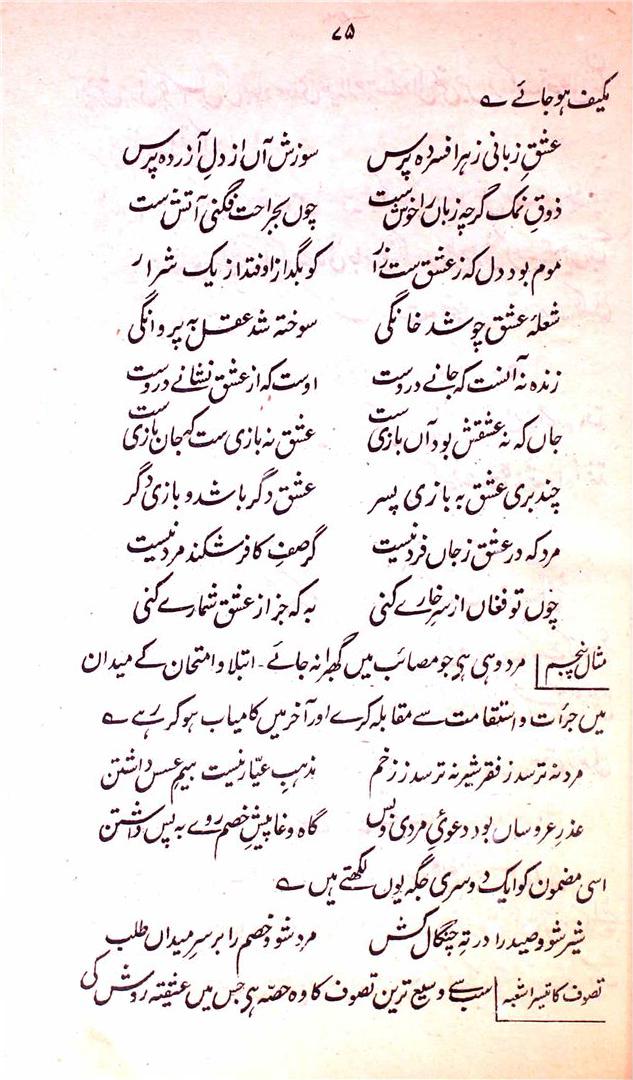 ۷۵
مکیف ہو جائے ے
عشقِ زبانی ز ہر افسردہ پرس سوزش آں از دلِ آزردہ پرس
ذوقِ نمک گرچہ زباں را خوش ست چوں بجراحت فگنی آتش ست
موم بود دل کہ ز عشق ست زار کو بگداز اوفتد از یک شرار
شعلۂ عشق چو شد خانگی سوختہ شد عقل بہ پروانگی
زندہ نہ آنست کہ جانے دروست اوست کہ از عشق نشانے دروست
جاں کہ نہ عشقش بود آں بازی ست عشق نہ بازی ست کہ جان بازی ست
چند بری عشق بہ بازی پسر عشق دگر باشد و بازی دگر
مرد کہ در عشق ز جاں فرد نیست گر صفِ کافر شکند مرد نیست
چوں تو فغاں از سرِ خارے کنی بہ کہ جز از عشق شمارے کنی
مثال پنجم مرد وہی ہی جو مصائب میں گھبرا نہ جائے ۔ ابتلا و امتحان کے میدان
میں جرأت و استقامت سے مقابلہ کرے اور آخر میں کامیاب ہو کر رہے ے
مرد نہ ترسد ز فقر شیر نہ ترسد ز زخم مذہبِ عیّار نیست بیمِ عسس داشتن
عذرِ عروساں بود دعویٔ مردی و بس گاہ وغا پیشِ خصم روے بہ پس داشتن
اسی مضمون کو ایک دوسری جگہ یوں لکھتے ہیں ے
شیر شو و صید را در تہِ چنگال کش مرد شو و خصم را بر سرِ میداں طلب
تصوف کا تیسرا شعبہ سب سے وسیع ترین تصوف کا وہ حصّہ ہی جس میں عشقیتہ روش کی